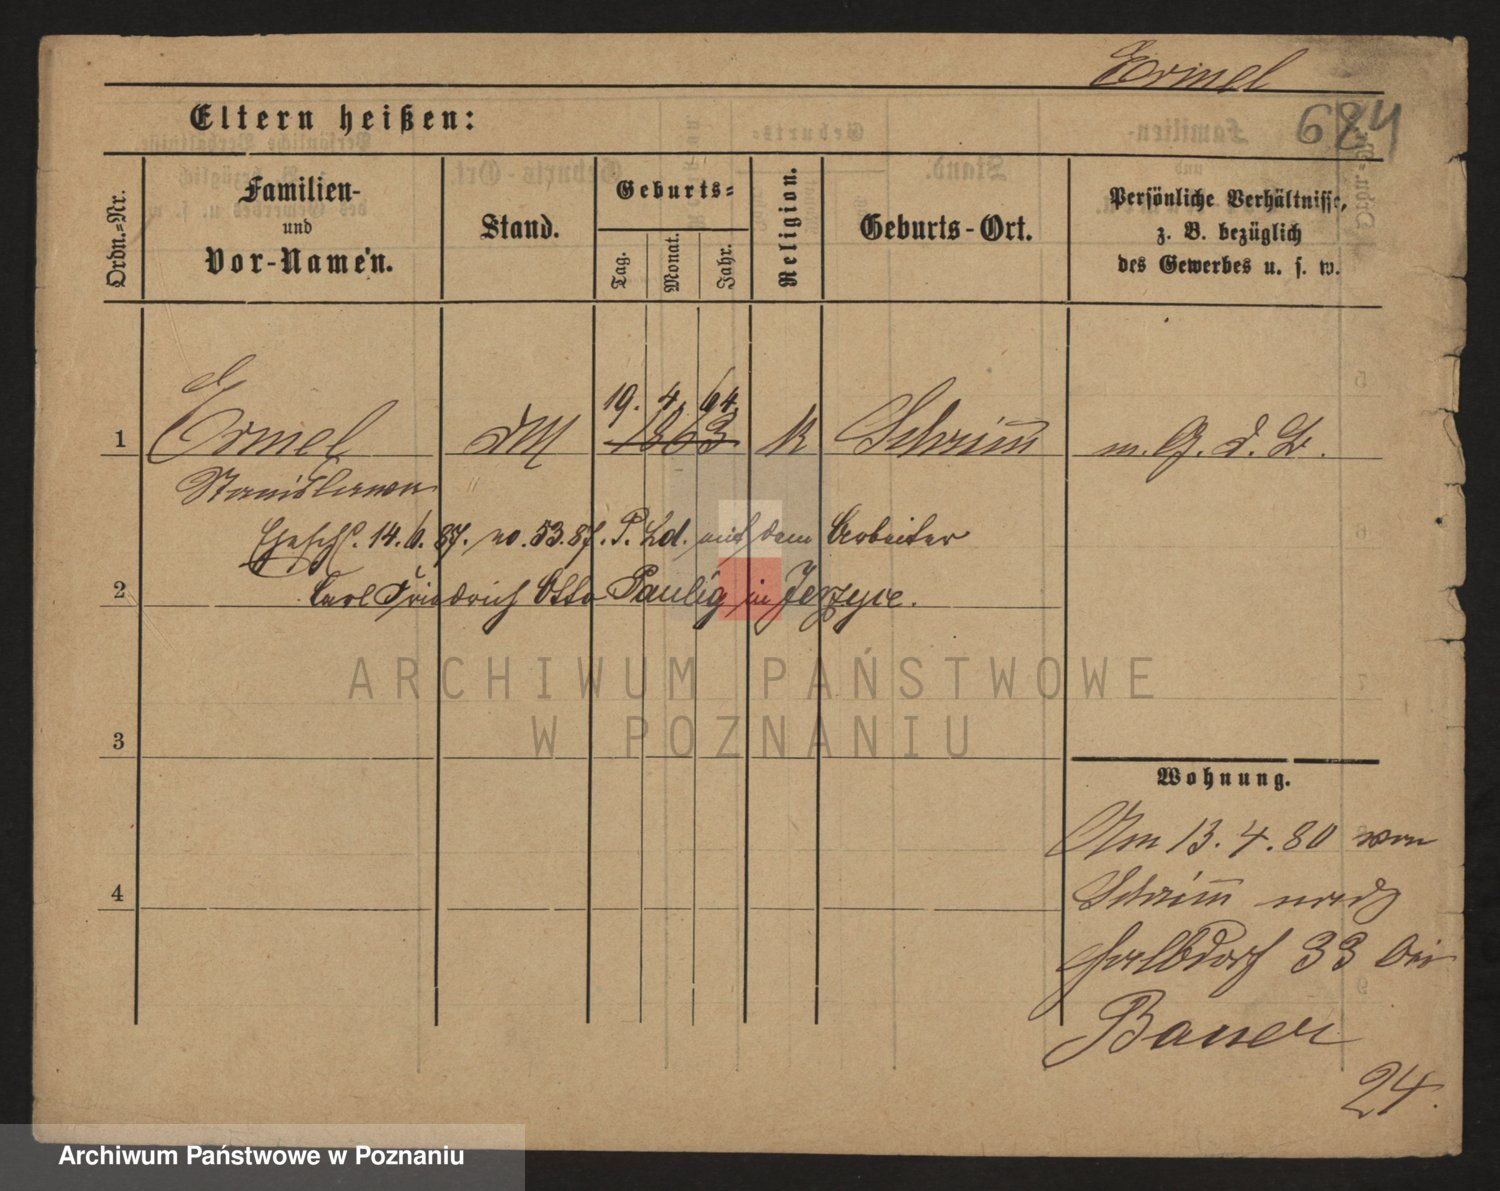 Ermel
684
Eltern heißen:
Ordn.=Nr.
Familien-
und
Vor-Namen.
Stand.
Geburts=
Tag.
Monat.
Jahr.
Religion.
Geburts-Ort.
Persönliche Verhältnisse,
z. B. bezüglich
des Gewerbes u. s. w.
19. 4. 64.
1 Ermel dM 1863 K Schrimm m. G. d. B.
Stanislawa
Eheschl. 14.6.87. no. 53.87. P. Ld. mit dem Arbeiter
2 Carl Friedrich Otto Paulig in Jerzyce.
ARCHIWUM PAŃSTWOWE
W POZNANIU
3
Wohnung.
Am 13.4.80 von
Schrimm nach
4
Halbdorf 33 bei
Bauer
24.
Archiwum Państwowe w Poznaniu